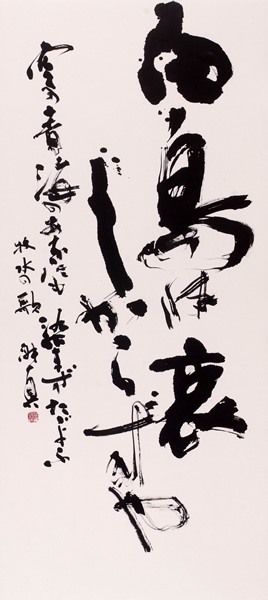 白鳥は哀
しからずや
空の青海のあをにも
染まずただよふ
牧水の歌